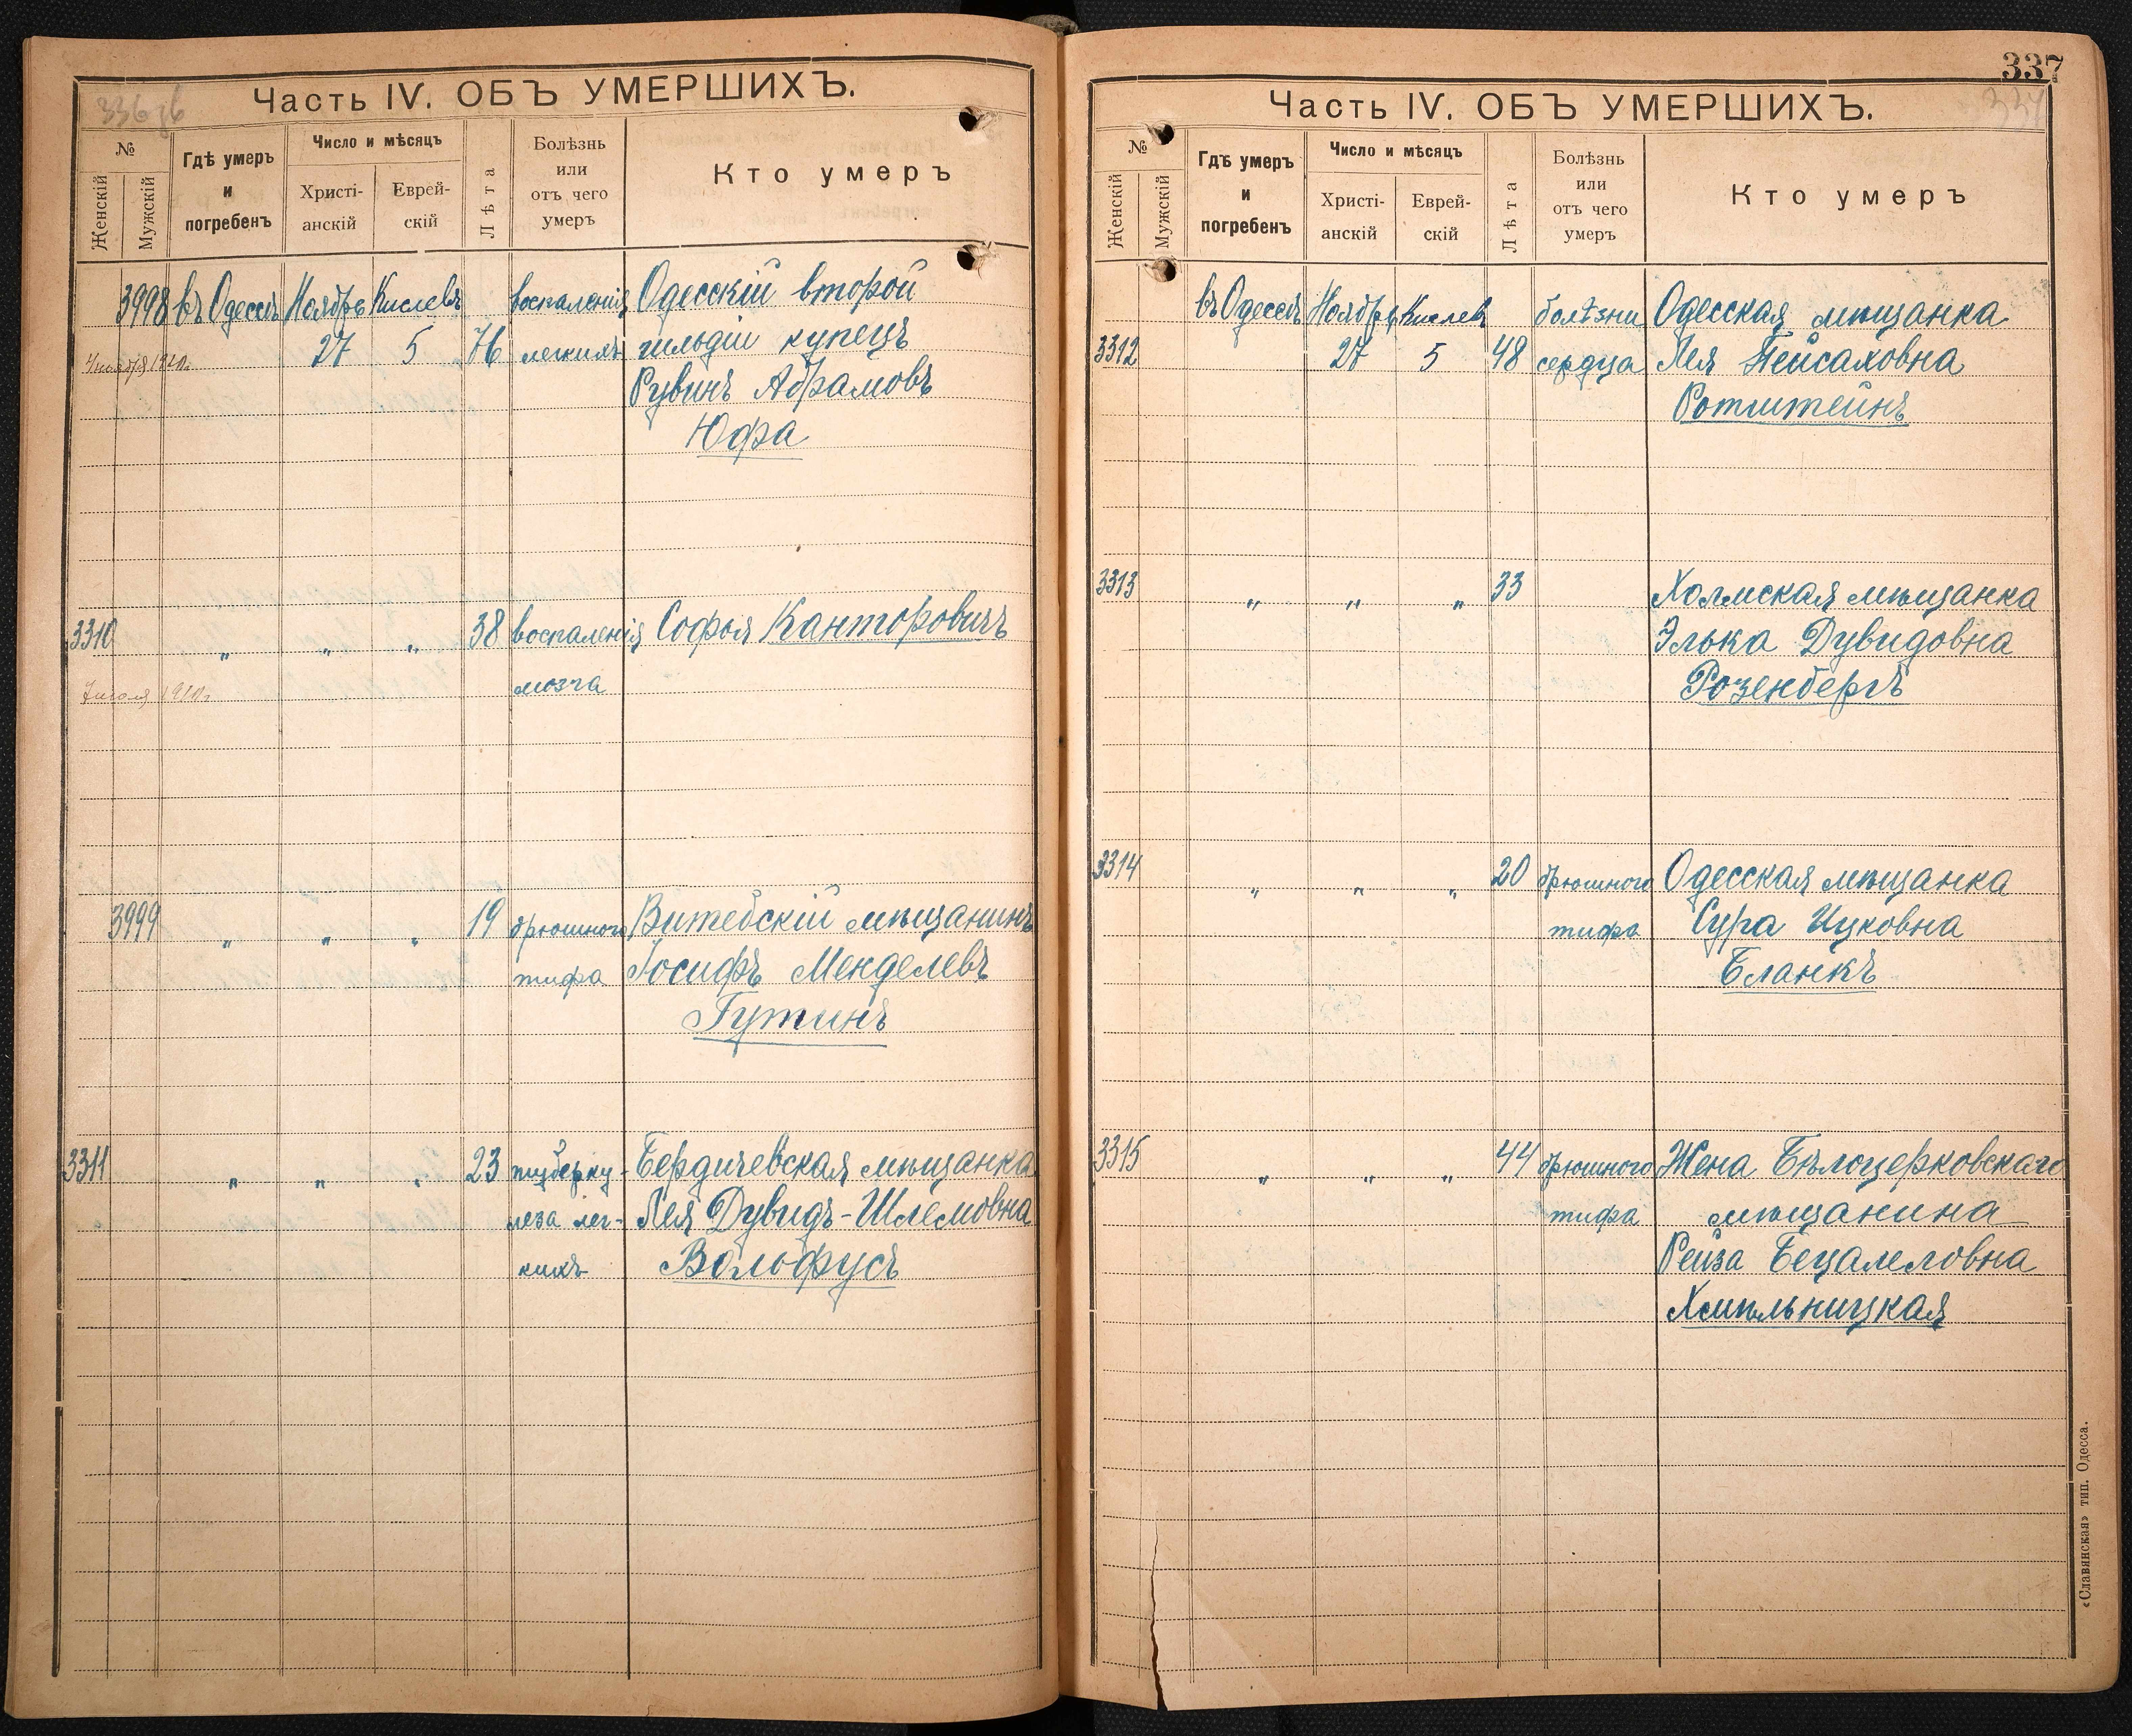 336 зв
Часть IV. ОБЪ УМЕРШИХЪ.
№
Женскій
Мужскій
Гдѣ умеръ и погребенъ
Число и мѣсяцъ
Христі-анскій
Еврей-скій
Лѣта
Болѣзнь или отъ чего умеръ
Кто умеръ
3998 въ Одессѣ Ноябрь Кислевъ воспаленія Одесскій второй
27 5 76 легкихъ гильдіи купецъ
1910г.
Рувинъ Абрамовъ
Юфа
3310 „ „ „ 38 воспаленія Софья Канторовичъ
мозга
1910г.
3999 „ „ „ 19 брюшного Витебскій мѣщанинъ
тифа Іосифъ Менделевъ
Гутинъ
3311 „ „ „ 23 туберку- Бердичевская мѣщанка
леза лег- Лея Дувидъ-Шлемовна
кихъ Вольфусъ
337
337
Часть IV. ОБЪ УМЕРШИХЪ.
№
Женскій
Мужскій
Гдѣ умеръ и погребенъ
Число и мѣсяцъ
Христі-анскій
Еврей-скій
Лѣта
Болѣзнь или отъ чего умеръ
Кто умеръ
въ Одессѣ Ноябрь Кислевъ болѣзни Одесская мѣщанка
3312 27 5 48 сердца Лея Пейсаховна
Ротштейнъ
3313 „ „ „ 33 Холмская мѣщанка
Элька Дувидовна
Розенбергъ
3314 „ „ „ 20 брюшного Одесская мѣщанка
тифа Сура Ицковна
Бланкъ
3315 „ „ „ 44 брюшного Жена Бѣлоцерковскаго
тифа мѣщанина
Рейза Бецалеловна
Хмѣльницкая
«Славянская» тип. Одесса.